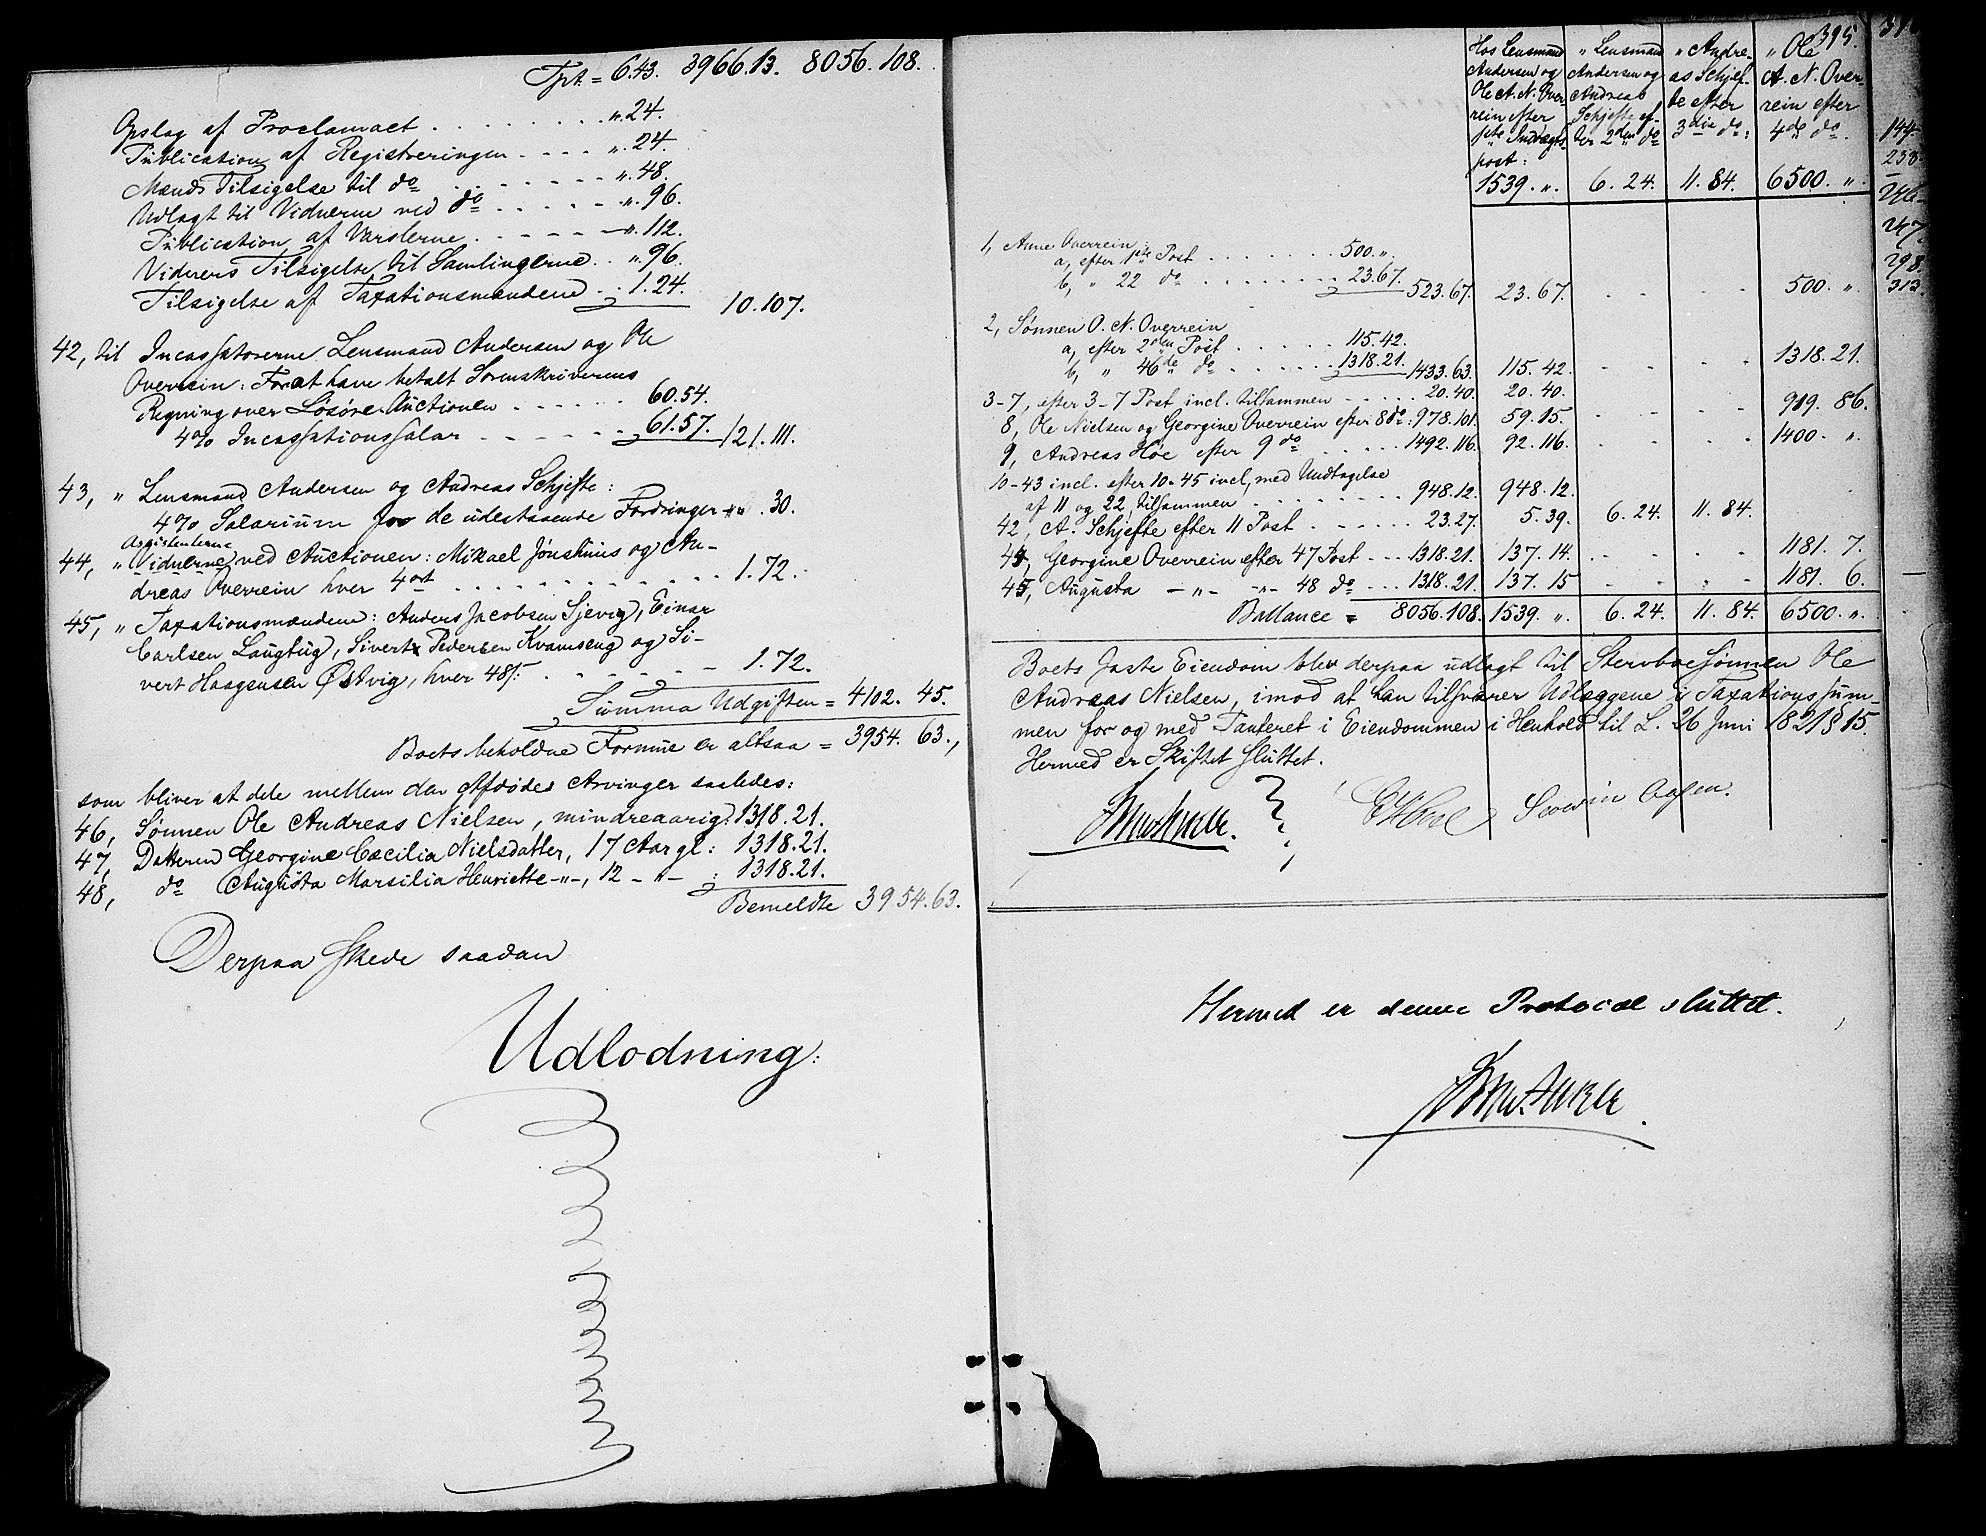 Tpt. = 6.43. 3966.13. 8056.108.
Opslag af Proclamaet . . . . . . . . ". 24.
Publication af Registreringen . . . . ". 24.
Mænds Tilsigelse til do . . . . . . . ". 48.
Udlagt til Vidnerne ved do . . . . . . ". 96.
Publication af Varslerne . . . . . . ". 112.
Viderers Tilsigelse til Samlingerne . . ". 96.
Tilsigelse af Taxationsmændene . . 1.24.
10.107.
42, til Incassatorerne Lensmand Andersen og Ole
Overrein: For at have betalt Sorenskriverens
Regning over Løsøre-Auctionen . . . . . . 60.54.
4% Incassationssalar . . . . . . 61.57. 121.111.
43, " Lensmand Andersen og Andreas Schjefte:
4% Salarium for de udestaaende Fordringer ". 30.
Assistenterne
44, " Vidnerne ved Auctionen: Mikael Jønshuus og An-
dreas Overrein hver 4 ort . . . . . . . . . . . . . . 1.72.
45, " Taxationsmændene: Anders Jacobsen Sjevig, Einar
Carlsen Laugtug, Sivert Pedersen Kvamseng og Si-
vert Haagensen Østvig, hver 48 s: . . . . . . . 1.72.
Summa Udgiften = 4102. 45.
Boets beholdne Formue er altsaa = 3954. 63.,
som bliver at dele mellem den Afdødes Arvinger saaledes:
46, Sønnen Ole Andreas Nielsen, mindreaarig: 1318.21.
47, Datteren Georgine Cæcilia Nielsdatter, 17 Aar gl: 1318.21.
48, do Augusta Marsilia Henriette -"-, 12 - " - : 1318.21.
Bemeldte 3954.63.
Derpaa skede saadan
Udlodning:
395.
Hos Lensmand Andersen og Ole A. N. Overrein efter 1ste Indtægtspost:
" Lensmand Andersen og Andreas Schjefte efter 2den do
" Andreas Schjefte efter 3die do:
" Ole A. N. Overrein efter 4de do.
1539. ". 6. 24. 11. 84. 6500. ".
1, Anne Overrein:
a, efter 1ste Post . . . . . . . 500. ".
b, " 22 do . . . . . . . 23.67. 523.67. 23.67. . . . . 500. ".
2, Sønnen O. N. Overrein
a, efter 2den Post . . . . . 115.42.
b, " 46de do . . . . . . 1318.21. 1433.63. 115. 42. . . . 1318. 21.
3-7, efter 3-7 Post incl. tilsammen . . . . . 20.40. 20. 40.
8, Ole Nielsen og Georgine Overrein efter 8 do: 978.101. 59. 15. . . . 919. 86.
9, Andreas Høe efter 9 do . . . . . 1492.116. 92. 116. . . . 1400. ".
10-43 incl. efter 10-45 incl, med Undtagelse
af 11 og 22, tilsammen . . . . . . . . . 948.12. 948.12.
42, A. Schjefte efter 11 Post . . . . . . . 23.27. 5.39. 6. 24. 11. 84.
44, Georgine Overrein efter 47 Post . . . 1318.21. 137. 14. . . . 1181. 7.
45, Augusta -"- -"- 48 do . . . 1318.21. 137. 15 . . . 1181. 6.
Ballance = 8056.108. 1539. ". 6. 24. 11. 84. 6500. ".
Boets faste Eiendom blev derpaa udlagt til Stervboesønnen Ole
Andreas Nielsen, imod at han tilsvarer Udlæggene i Taxationssum-
men for og med Panteret i Eiendommen i Henhold til L. 26 Juni 1821 § 15.
Hermed er Skiftet sluttet.
Sivert Aasen.
Hermed er denne Protocol sluttet.
144
238
246
247
298
313